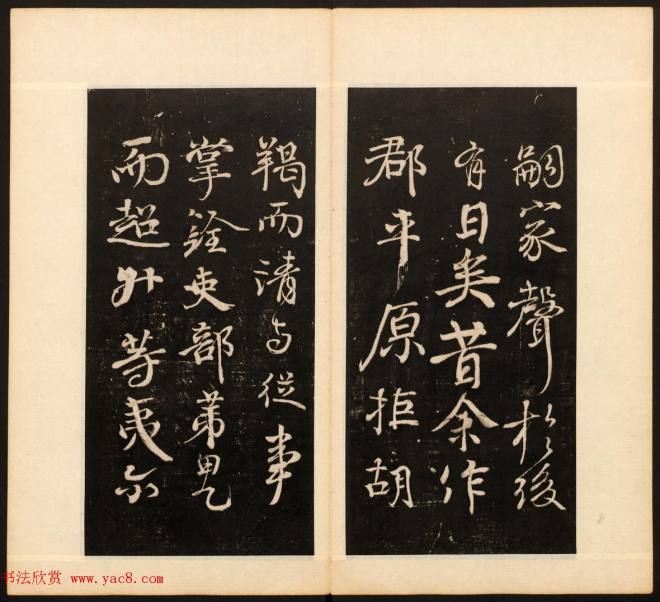 嗣家聲於後
有日矣昔余作
郡平原拒胡
羯而清与從事
掌銓吏部苐甲乙
而超升等夷尔
书法欣赏 www.yac8.com